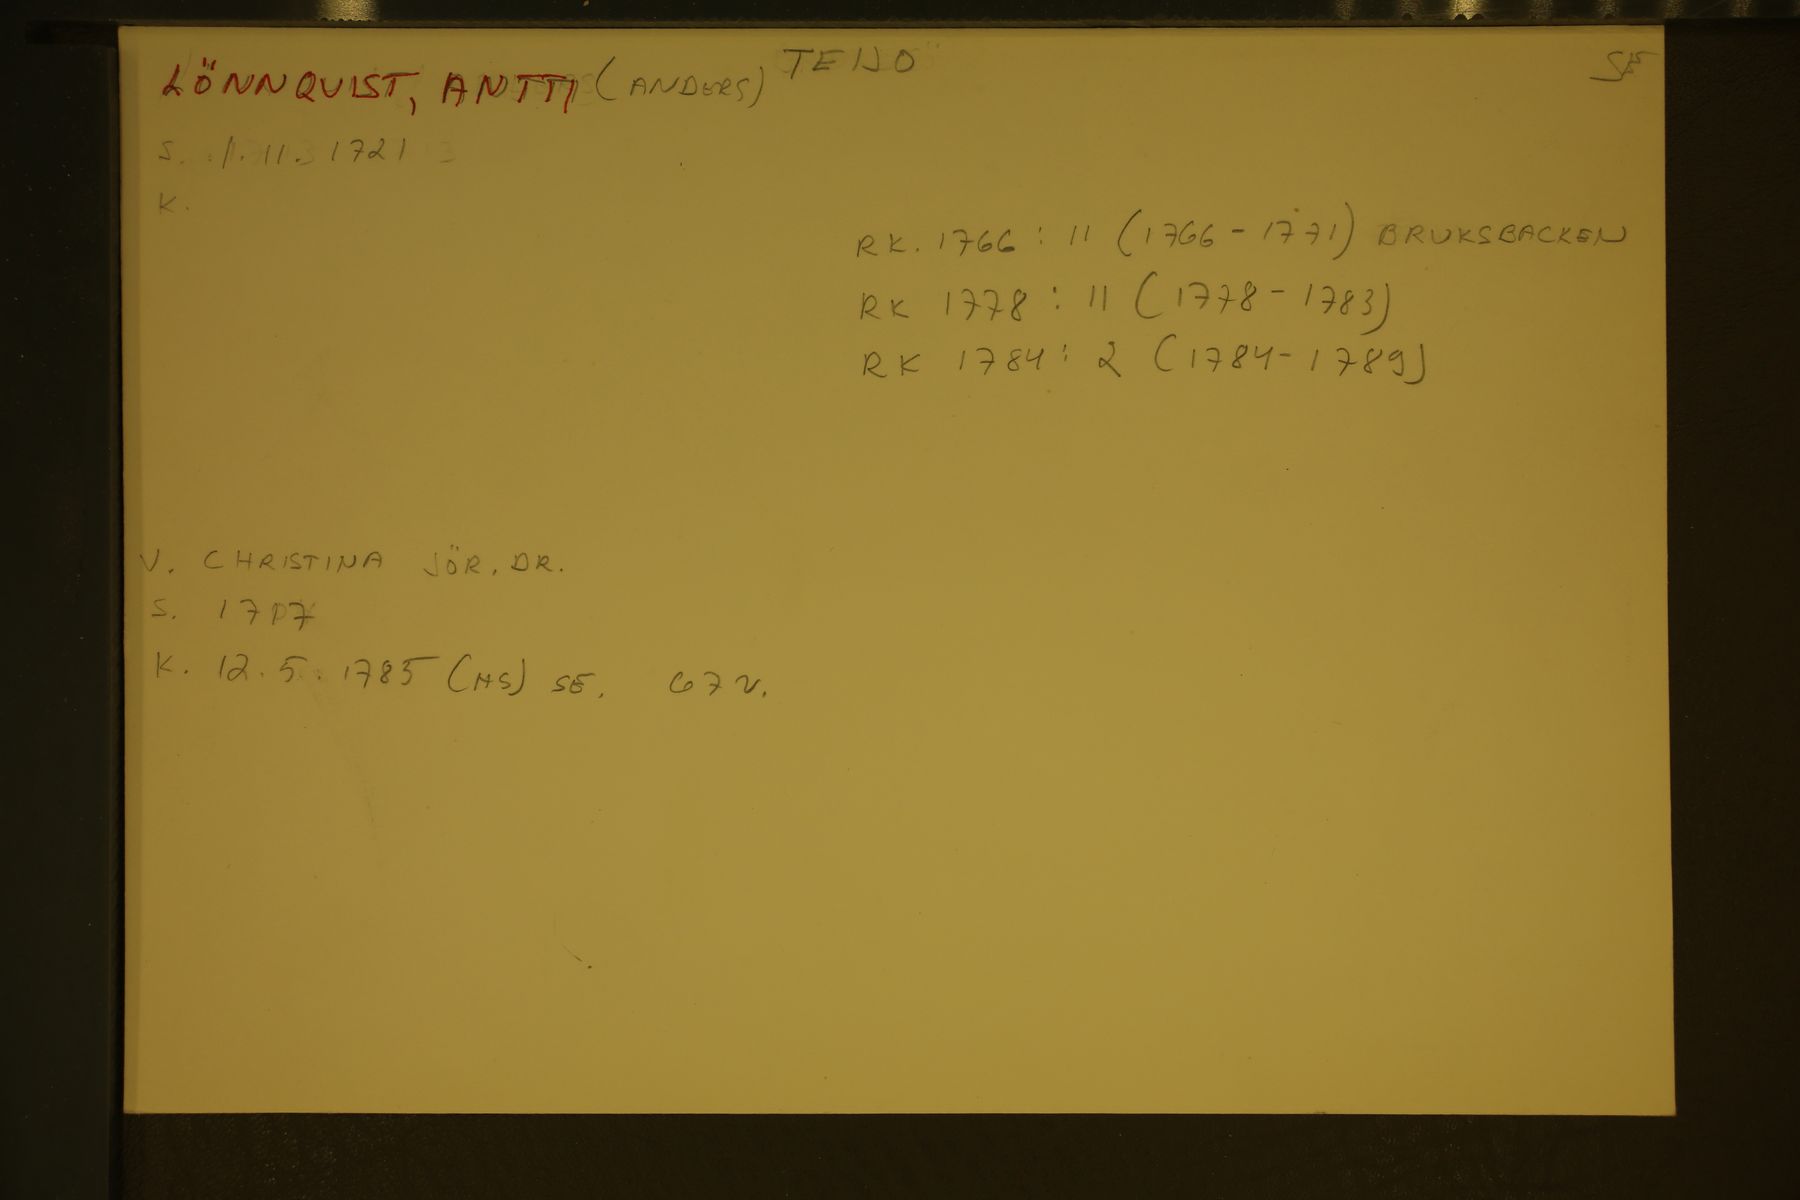 LÖNNQUIST, ANTTI (ANDERS) TEIJO SE
S. 1.11.1721
K.
RK. 1766 : 11 (1766 - 1771) BRUKSBACKEN
RK 1778 : 11 (1778 - 1783)
RK 1784 : 2 (1784 - 1789)
V. CHRISTINA JÖR. DR.
S. 1717
K. 12.5.1785 (HS) SE. 67 V.